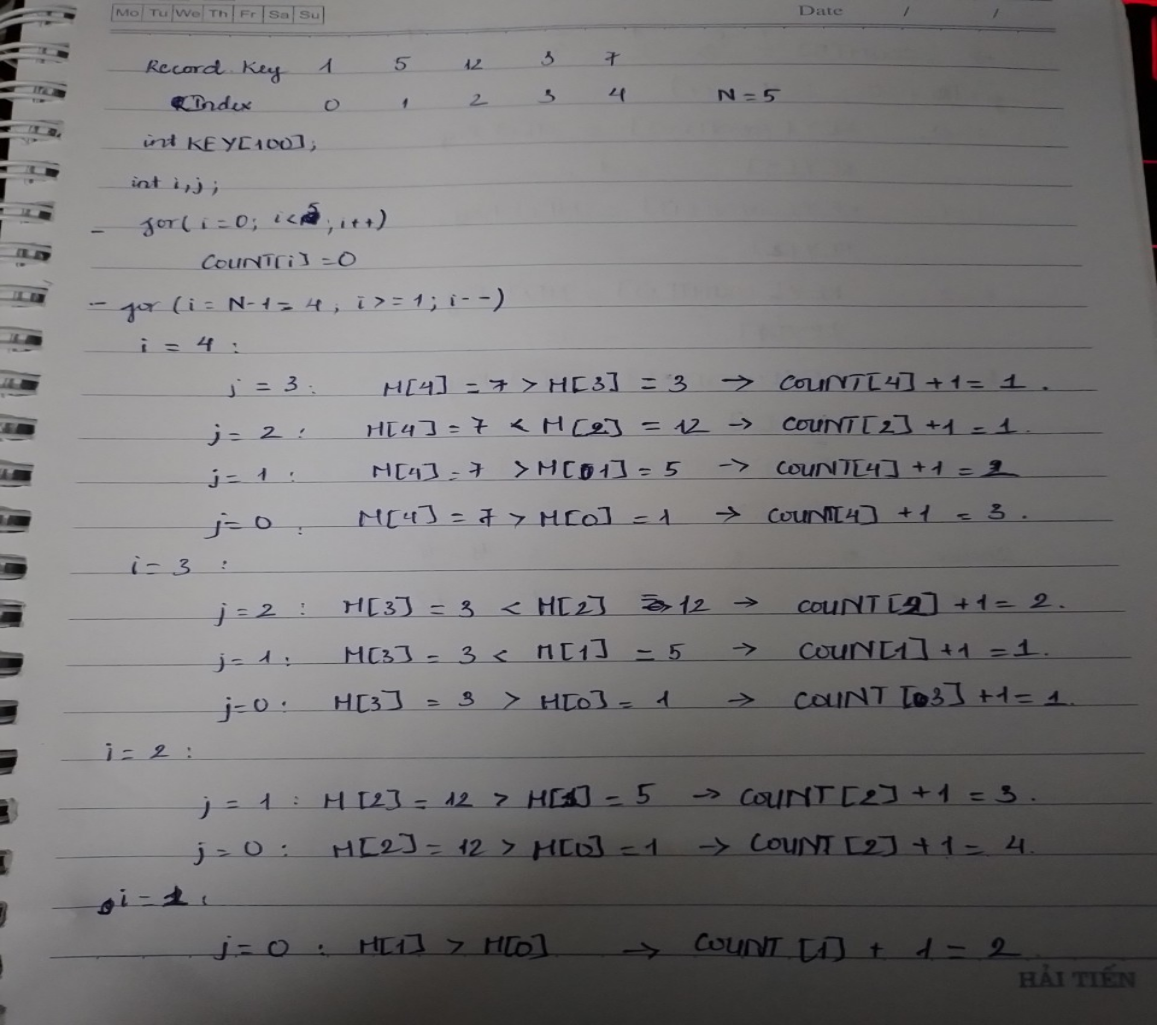 Mo Tu We Th Fr Sa Su Date / /
Record Key 1 5 12 3 7
Index 0 1 2 3 4 N = 5
int KEY[100];
int i,j;
- for( i = 0; i<5; i++)
COUNT[i] = 0
- for (i = N-1 = 4, i >= 1; i--)
i = 4 :
j = 3 : M[4] = 7 > M[3] = 3 → COUNT[4] + 1 = 1.
j = 2 : M[4] = 7 < M[2] = 12 → COUNT[2] + 1 = 1.
j = 1 : M[4] = 7 > M[1] = 5 → COUNT[4] + 1 = 2
j = 0 : M[4] = 7 > M[0] = 1 → COUNT[4] + 1 = 3.
i = 3 :
j = 2 : M[3] = 3 < M[2] = 12 → COUNT[2] + 1 = 2.
j = 1 : M[3] = 3 < M[1] = 5 → COUN[1] + 1 = 1.
j = 0 : M[3] = 3 > M[0] = 1 → COUNT [3] + 1 = 1.
i = 2 :
j = 1 : M[2] = 12 > M[1] = 5 → COUNT [2] + 1 = 3.
j = 0 : M[2] = 12 > M[0] = 1 → COUNT [2] + 1 = 4.
i = 1 :
j = 0 : M[1] > M[0] → COUNT [1] + 1 = 2
HẢI TIẾN